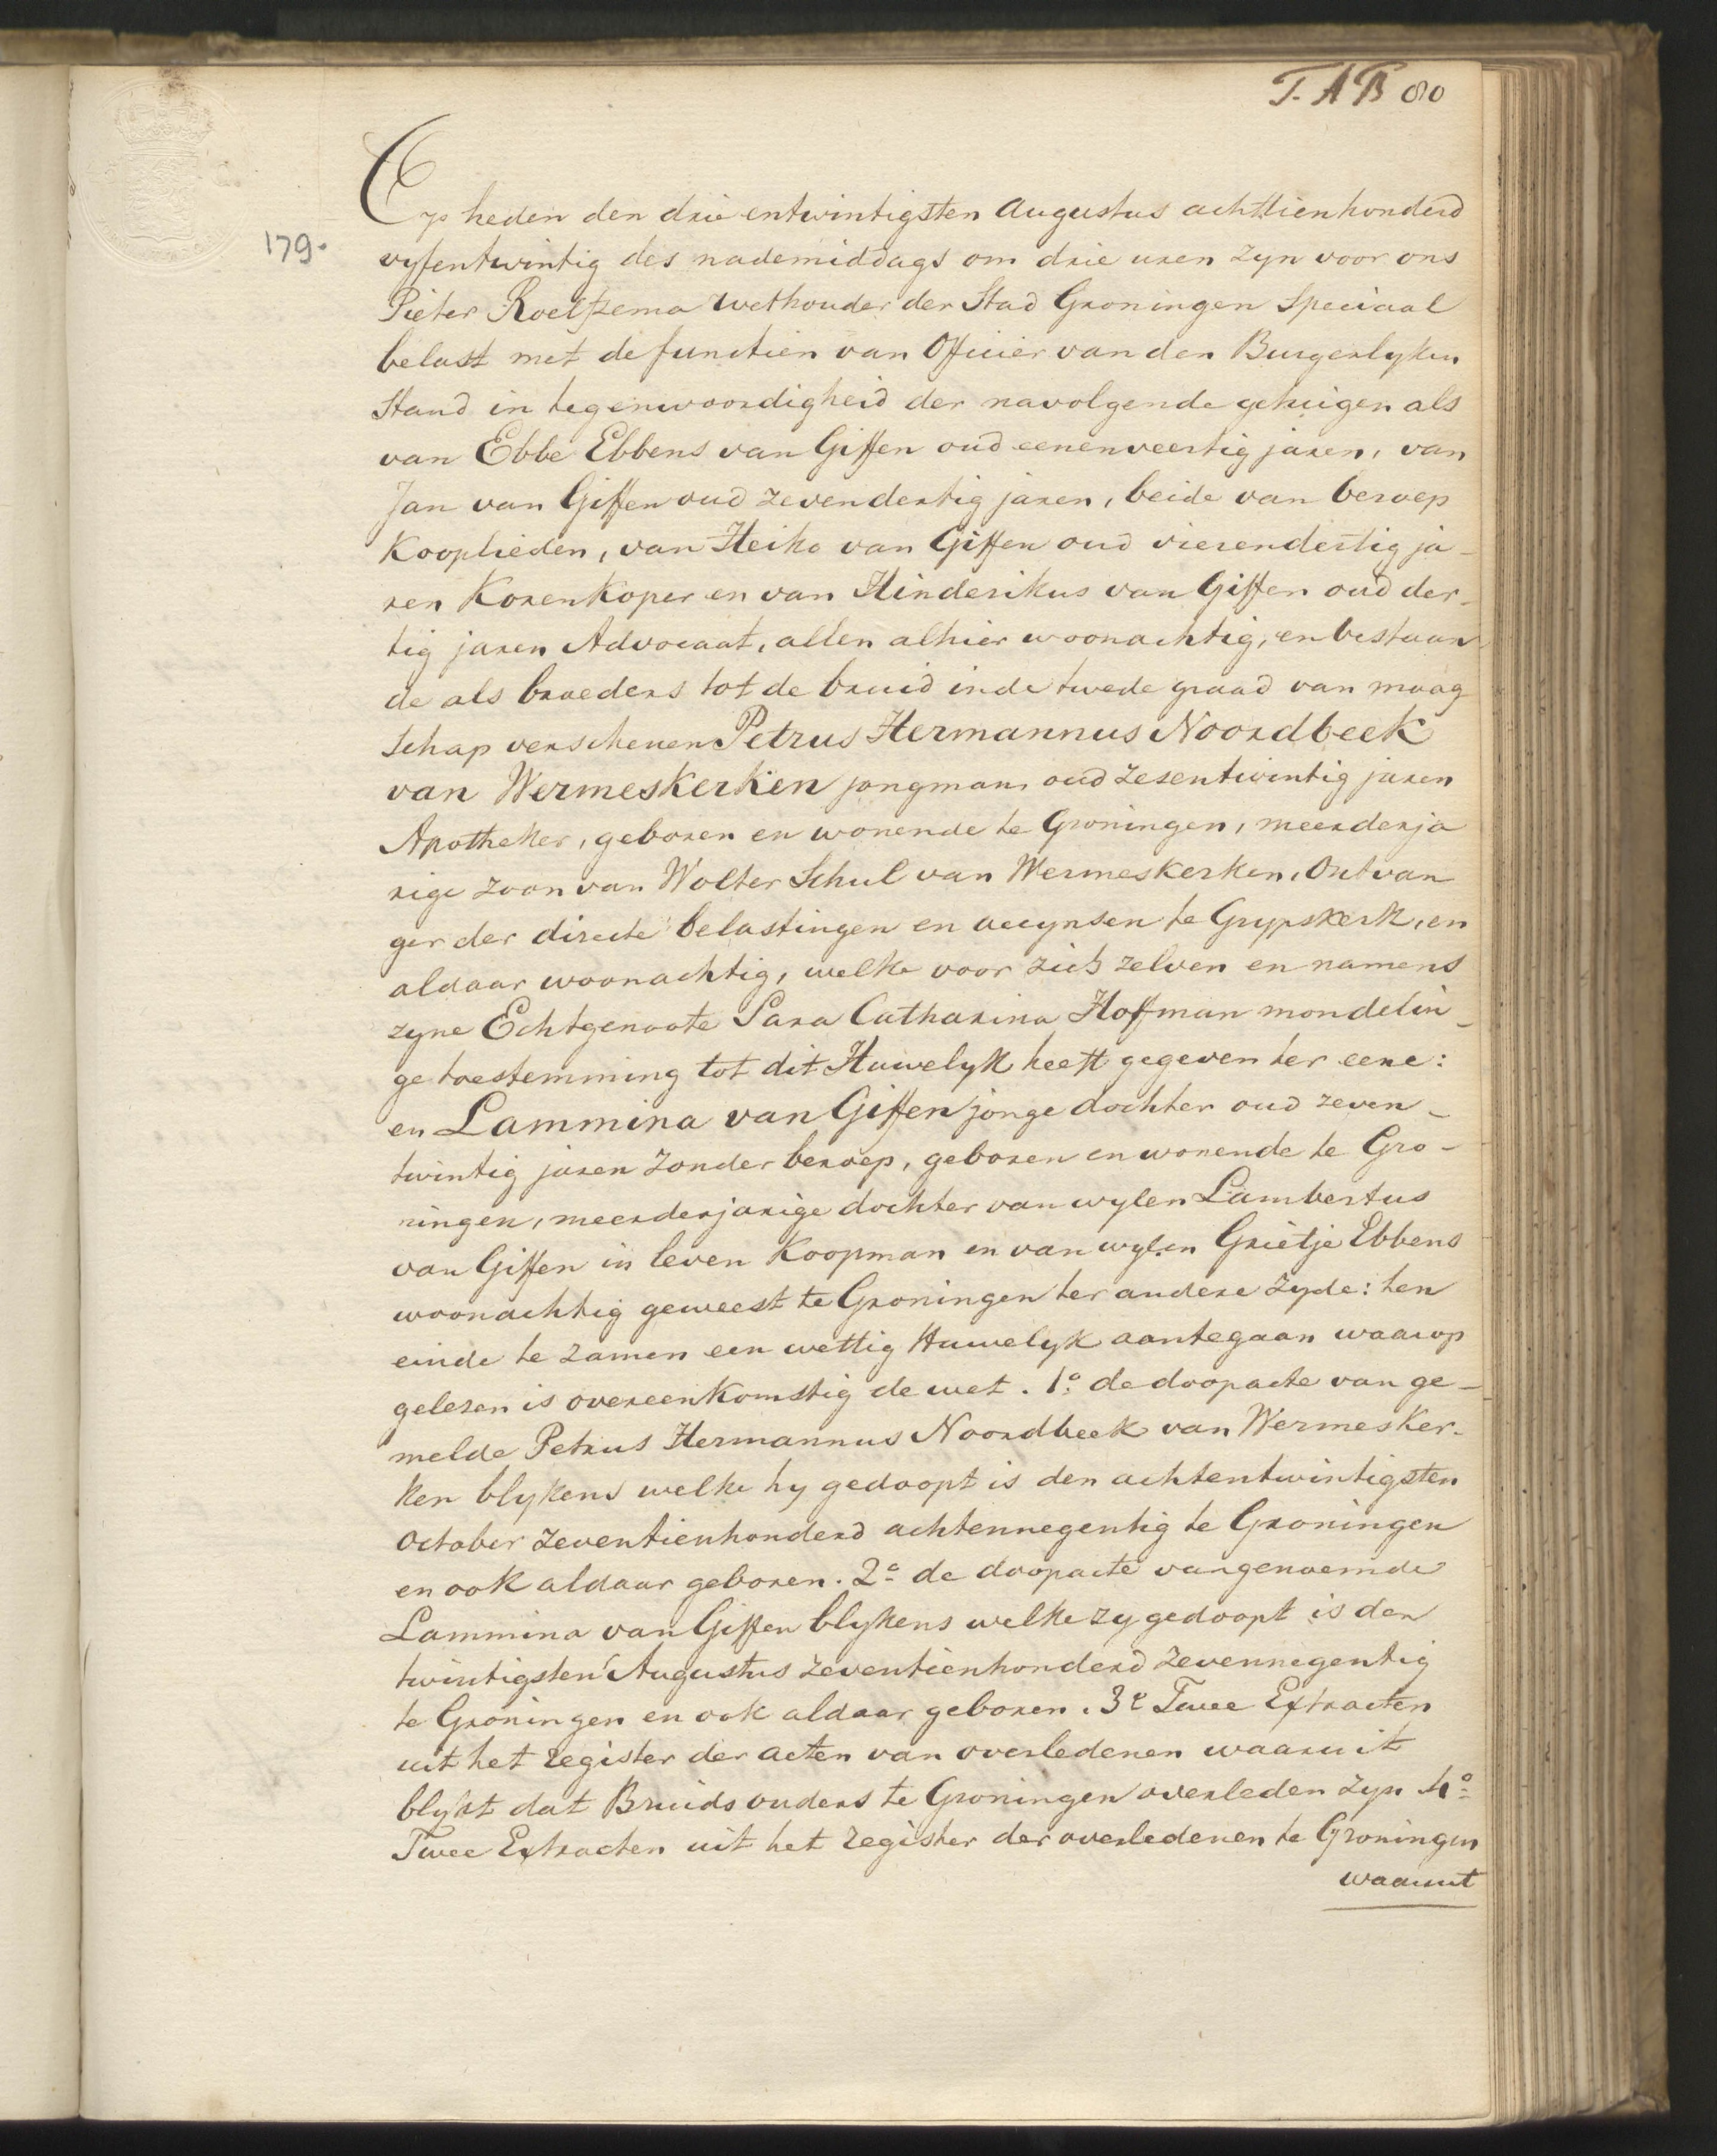 T. A B 80
179.
Op heden den drie entwintigsten Augustus achttienhonderd
vyfentwintig des nademiddags om drie uren zyn voor ons
Pieter Roelfzema Wethouder der Stad Groningen Speciaal
belast met de functien van Officier van den Burgerlyken
Stand in tegenwoordigheid der navolgende getuigen als
van Ebbe Ebbens van Giffen oud eenenveertig jaren, van
Jan van Giffen oud zevendertig jaren, beide van beroep
Kooplieden, van Heiko van Giffen oud vierendertig ja-
ren Korenkoper en van Hinderikus van Giffen oud der-
tig jaren Advocaat, allen alhier woonachtig, en bestaan-
de als broeders tot de bruid in de twede graad van maag
schap verschenen Petrus Hermannus Noordbeek
van Wermeskerken jongman oud zesentwintig jaren
Apotheker, geboren en wonende te Groningen, meerderja
rige zoon van Wolter Schul van Wermeskerken, Ontvan
ger der directe belastingen en accynsen te Grypskerk, en
aldaar woonachtig, welke voor zich zelven en namens
zyne Echtgenoote Sara Catharina Hoffman mondelin-
ge toestemming tot dit Huwelyk heeft gegeven ter eene:
en Lammina van Giffen jonge dochter oud zeven-
twintig jaren zonder beroep, geboren en wonende te Gro-
ningen, meerderjarige dochter van wylen Lambertus
van Giffen in leven Koopman en van wylen Grietje Ebbens
woonachtig geweest te Groningen ter andere zyde: ten
einde te zamen een wettig Huwelyk aantegaan waarop
gelezen is overeenkomstig de wet. 1o de doopacte van ge-
melde Petrus Hermannus Noordbeek van Wermesker-
ken blykens welke hy gedoopt is den achtentwintigsten
October zeventienhonderd achtennegentig te Groningen
en ook aldaar geboren. 2o de doopacte van genoemde
Lammina van Giffen blykens welke zy gedoopt is den
twintigsten Augustus zeventienhonderd zevennegentig
te Groningen en ook aldaar geboren. 3e Twee Extracten
uit het register der acten van overledenen waaruit
blykt dat Bruids ouders te Groningen overleden zyn 4o
Twee Extracten uit het register der overledenen te Groningen
waaruit